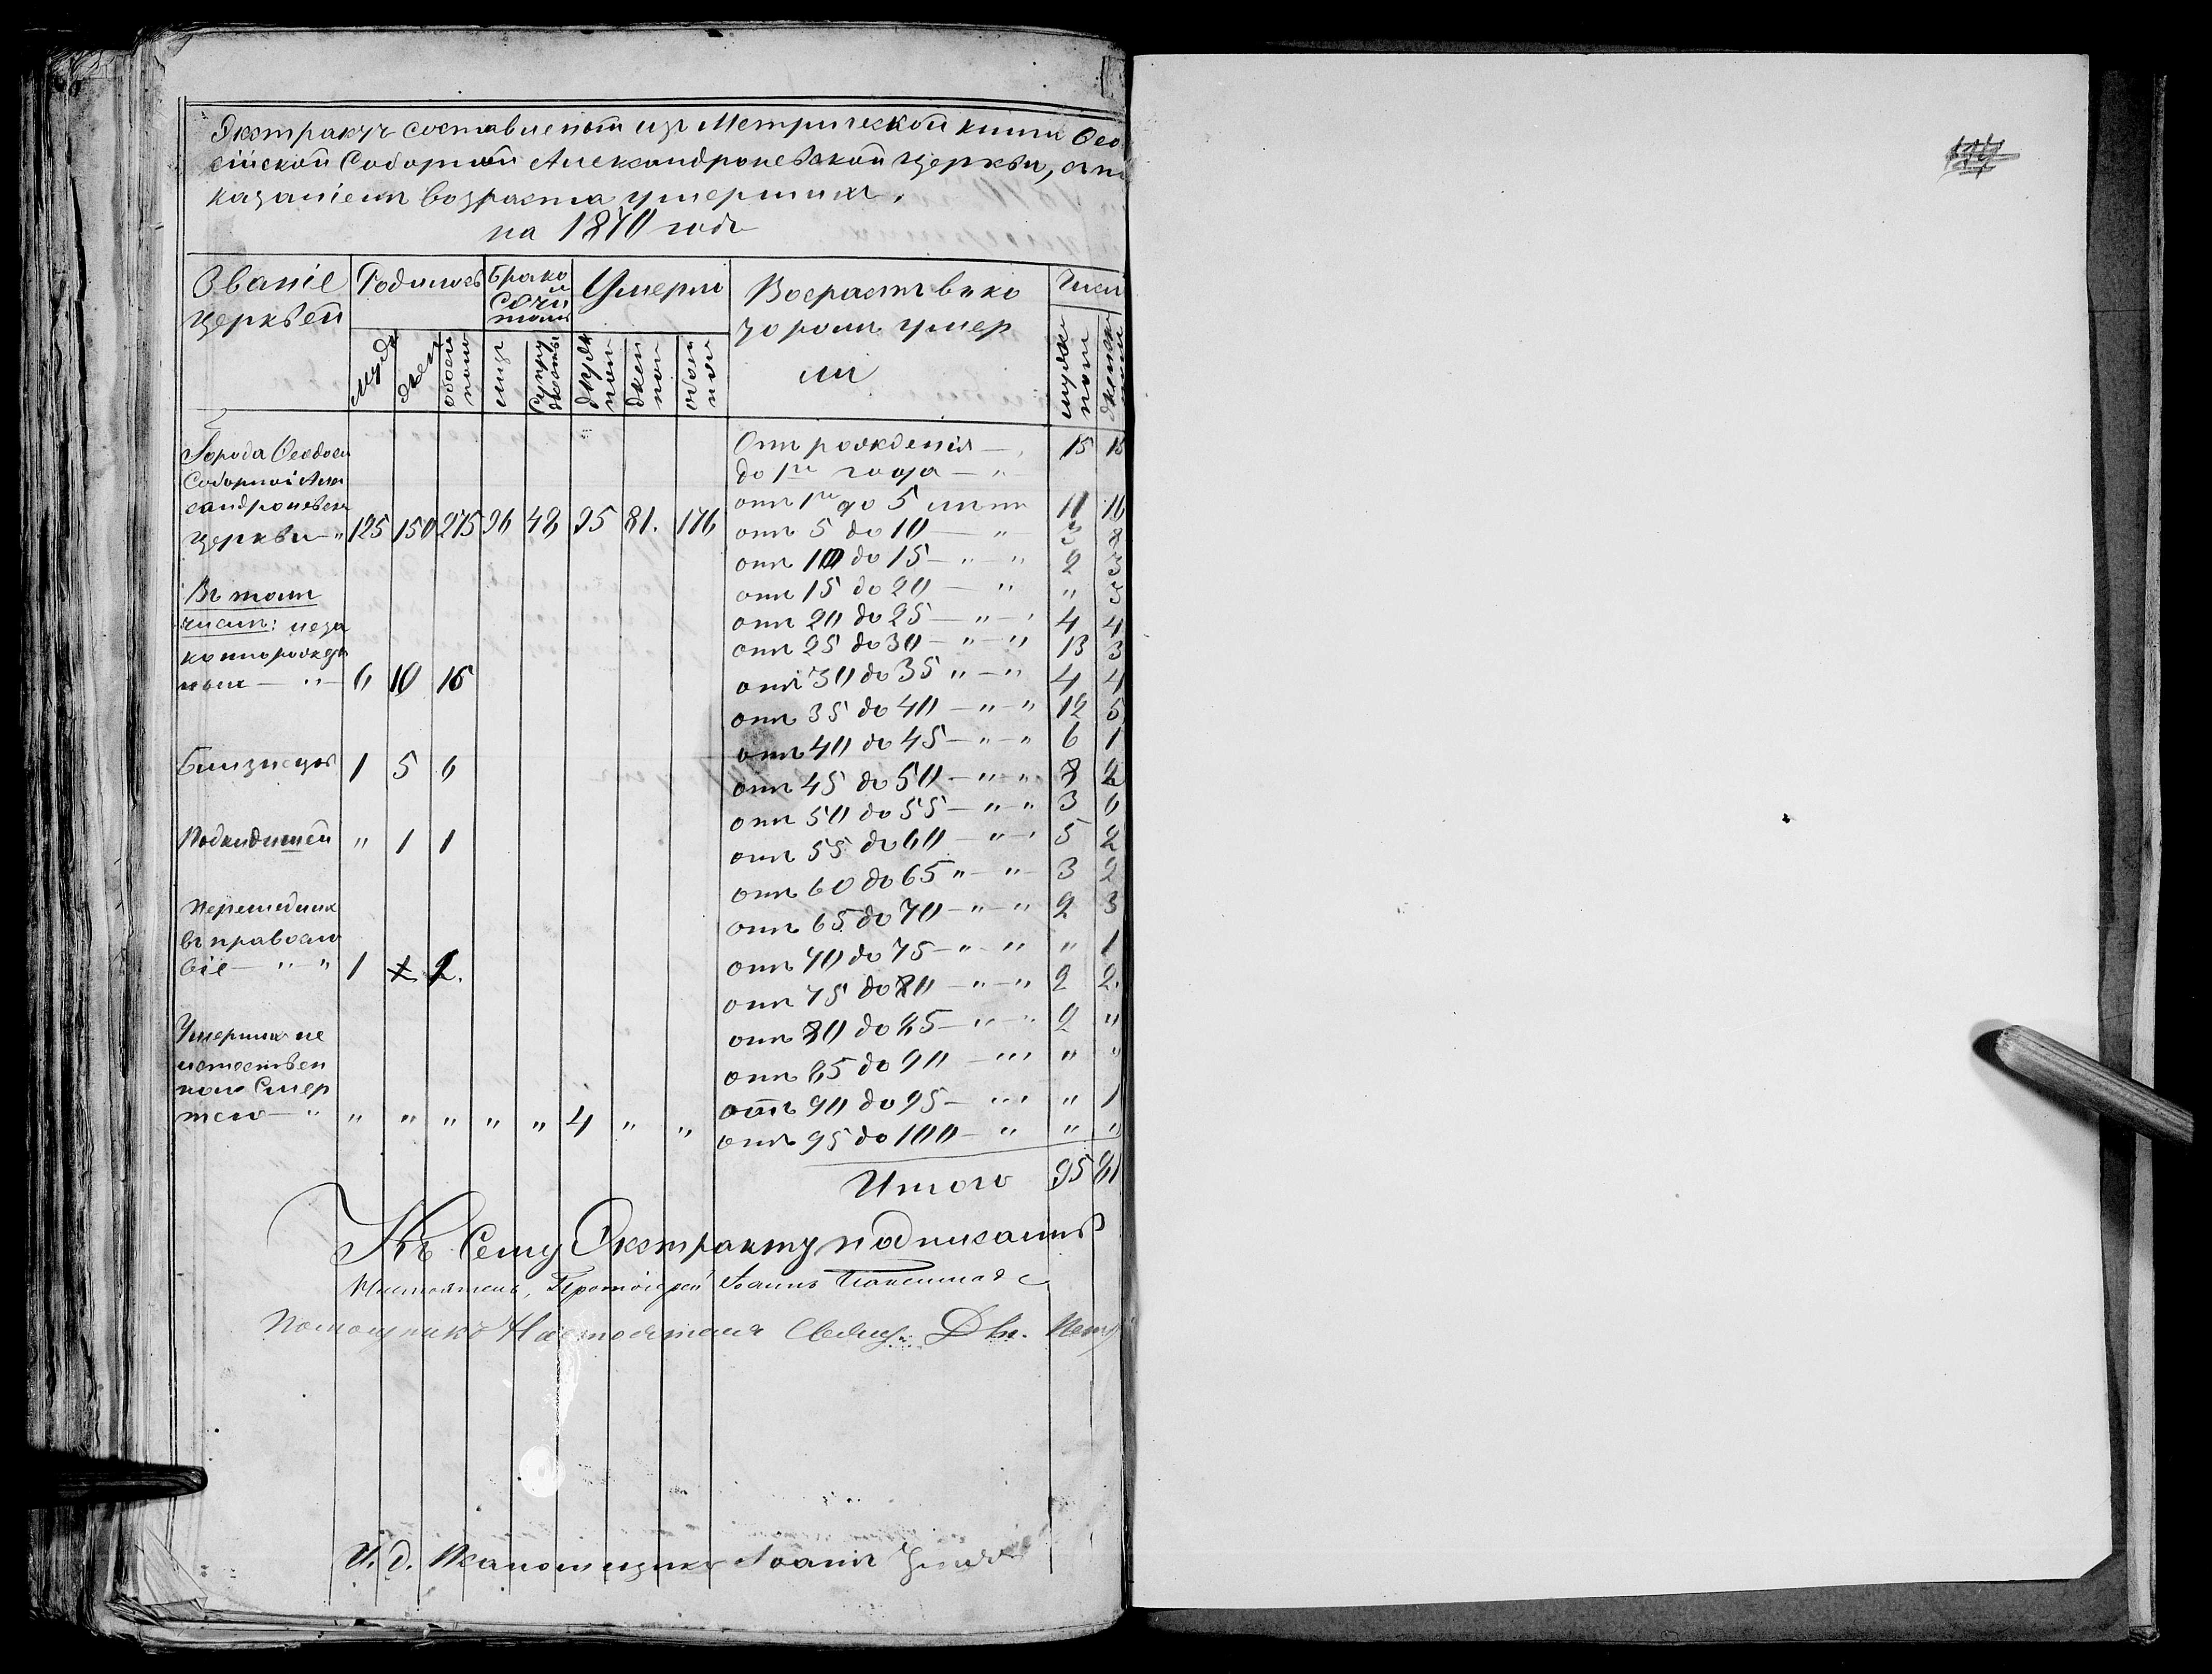 Экстрактъ составленый изъ Метрической книги Ѳео
сійской Соборной Александроневской церкви, съ п
казаніемъ возраста умершихъ.
на 1870 годъ
Званіе церквей
Родилось
Брако сочи танія
Умерло
Возрастъ въ ко
торомъ умер
ли
Числ
муж
жен
обоего пола
лиц
Супру жествъ
муж пол
жен пол
обоего пол
мужск пол
женск
Города Ѳеодосіи
Соборной Алек
сандроневской
церкви — „ 125 150 275 96 48 95 81. 176
Въ томъ
числѣ: неза
коннорожден
ныхъ — „ — 6 10 16
Близнецовъ 1 5 6
Подкидышей „ 1 1
Перешедшихъ
въ правосла
віе — „ — „ 1 1 2.
Умершихъ не
естествен
ною Смер
тію — „ „ „ „ „ „ 4 „ „
Отъ рожденія — 15 15
до 1го года — „
отъ 1го до 5 лѣтъ 11 16
отъ 5 до 10 — „ — 3 8
отъ 10 до 15 — „ — „ 2 3
отъ 15 до 20 — „ „ 3
отъ 20 до 25 — „ — „ 4 4
отъ 25 до 30 — „ — „ 13 3
отъ 30 до 35 „ — „ 4 4
отъ 35 до 40 — „ — „ 12 5
отъ 40 до 45 — „ — „ 6 1
отъ 45 до 50 — „ — „ 8 2
отъ 50 до 55 — „ — „ 3 6
отъ 55 до 60 — „ — „ 5 2
отъ 60 до 65 „ — „ — 3 2
отъ 65 до 70 — „ — „ 2 3
отъ 70 до 75 — „ — „ „ 1
отъ 75 до 80 — „ — „ 2 2.
отъ 80 до 85 — „ — „ 2 „
отъ 85 до 90 — „ „ „ „
отъ 90 до 95 — „ „ „ 1
отъ 95 до 100 — „ „ „
Итого 95 81
Къ Сему Экстракту подписались
Настоятель, Протоіерей Іоаннъ
Помощникъ Настоятеля Свящ. Дм. Петр
И. д. Псаломщика Іоаннъ